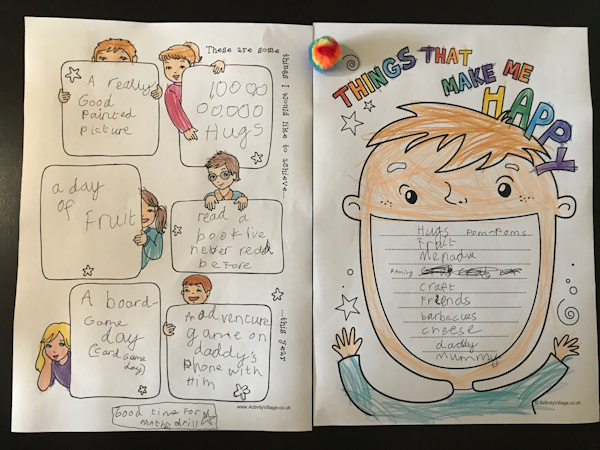 These are some things I would like to achieve...
A really
Good
Painted
picture
10000
00.000
Hugs
a day
of Fruit
read a
book Iive
never read
before
A board-
Game
day
(Card Game
day)
An adventure
game on
daddy's
phone with
Him
...this year
www.ActivityVillage.co.uk
Good time for
maths drill
THINGS THAT
MAKE ME
HAPPY
Hugs pom-poms
Fruit
Menadue
Family
craft
Friends
barbecues
cheese
daddy
mummy
© ActivityVillage.co.uk